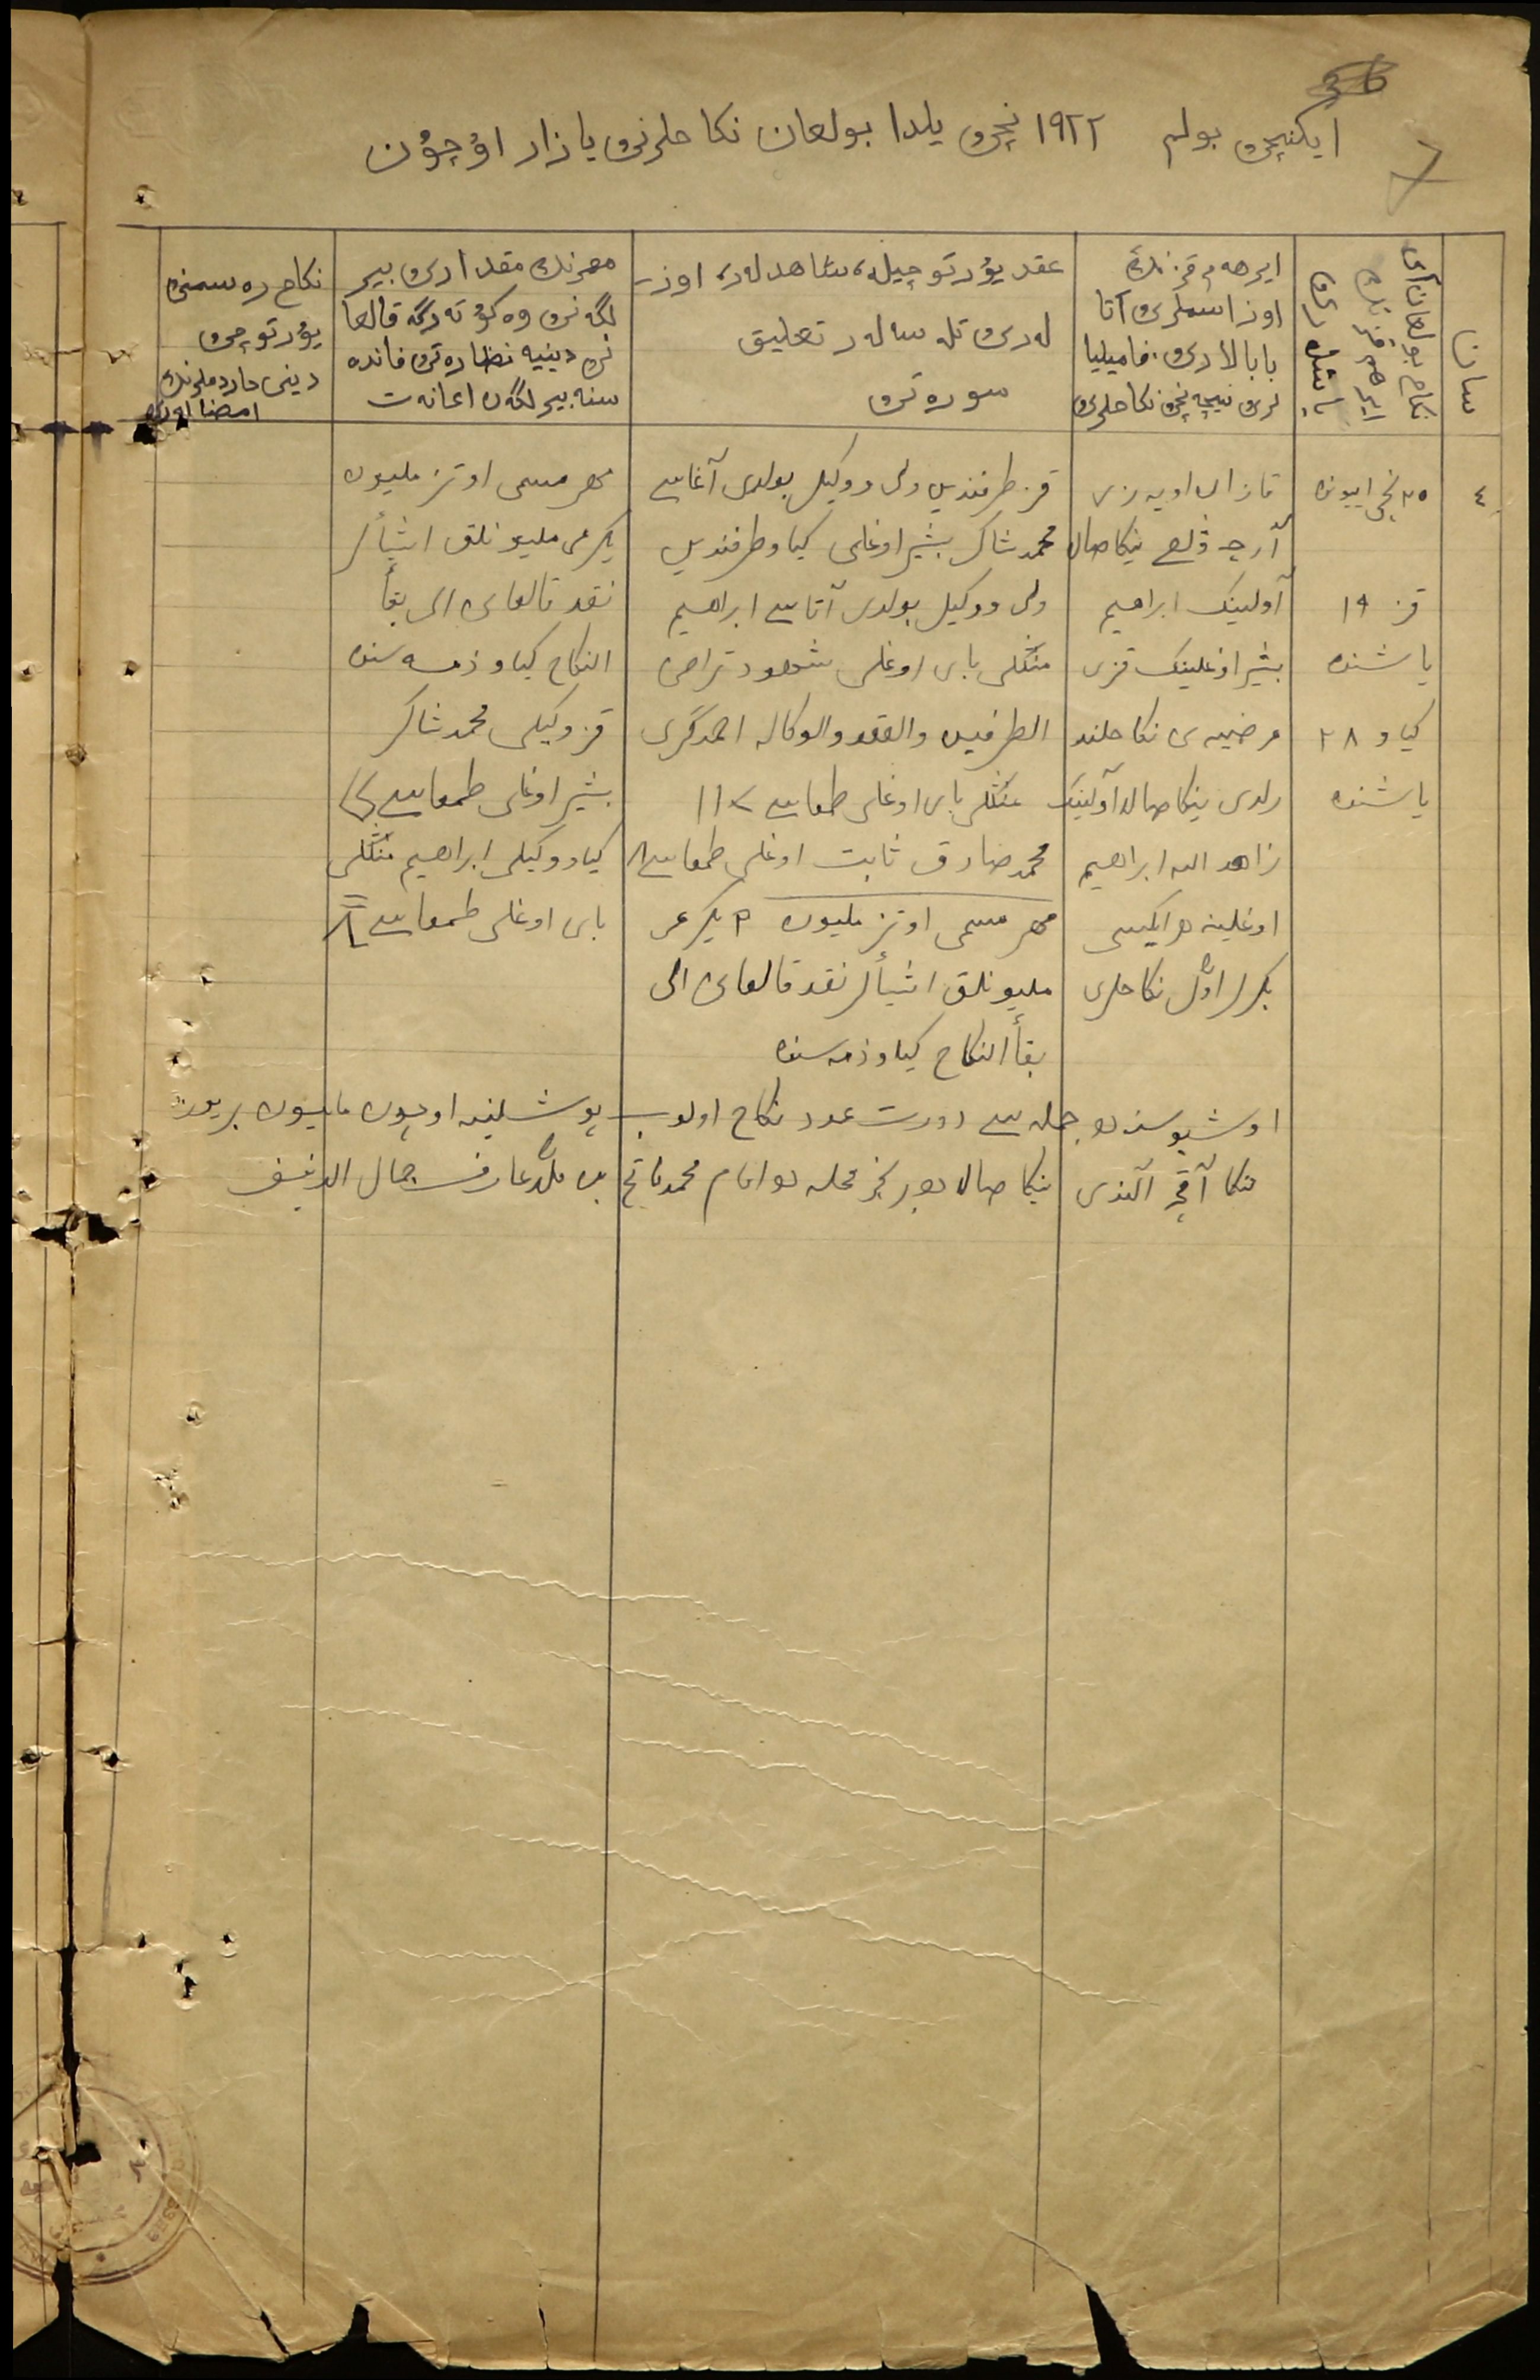 ایکنچی بولم ۱۹۲۲ نچی یلدا بولعان نکاحلرنی یازار اۋچۇن
سان
نکاح بولعان آی
ایر هم قزننڭ
یاشلاری
ایر هم قزننڭ
اوز اسملری آتا
بابالاری، فامیلیا
لری نیچه نچی نکاحلری
عقد یۇرتوچیله، شاهدلەر، اوز
لەری تله سەلەر تعلیق
سورەتی
مهرننڭ مقداری بیر
لگەنی وە کۇتەرگە قالعا
نی دینیه نظارەتی فائدە
سنه بیرلگەن اعانەت
نکاح رەسمنی
یۇرتوچی
دینی خادملرننڭ
امضالەری
٤
۲٥ نچی اییونده
قز ۱۹
یاشنده
کیاو ۲۸
یاشنده
قازان اویەزی
آرچە ینکا صالا
آولینک ابراهیم
بشیر اوغلینک قزی
مرضیەی نکاحلند
ردی ینکا صالا آولینک
زاهد الله ابراهیم
اوغلینه هر ایکیسی
بکرلر اوّل نکاحلری
قز طرفندین ولی ووکیل بولدی آغاسی
محمدشاکر بشیر اوغلی کیاو طرفندین
ولی ووکیل بولدی آتاسی ابراهیم
منگلی بای اوغلی شهود تراضی
الطرفین والعقد والوکاله احمدگری
منگلی بای اوغلی طمغاسی
محمد صادق ثابت اوغلی طمغاسی
مهر مسمی اوتز ملیون یکرمی
ملیونلق اشیألر نقد قالعانی الی
بقأ النکاح کیاو ذمەسنده
مهر مسمی اوتز ملیون
یکرمی ملیونلق اشیألر
نقد قالعانی الی بقأ
النکاح کیاو ذمەسنده
قز وکیلی محمدشاکر
بشیر اوغلی طمغاسی
کیاو وکیلی ابراهیم منگلی
بای اوغلی طمغاسی
اوشبو سنەدە جملەسی دورت عدد نکاح اولوب اوچون ملیون بر یوز
منکا آقچە آلندی ینکا صالا محلە امام محمدفاتح بن ملا عارف جمال الدینف